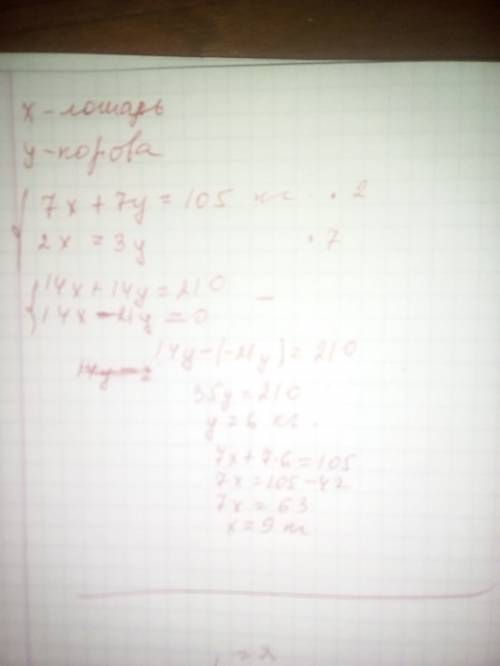 х - лошарь
у - корова
7x + 7y = 105 кг · 2
2x = 3y · 7
14x + 14y = 210 −
14x − 21y = 0
14y − (−21y) = 210
35y = 210
y = 6 кг.
7x + 7·6 = 105
7x = 105 − 42
7x = 63
x = 9 кг